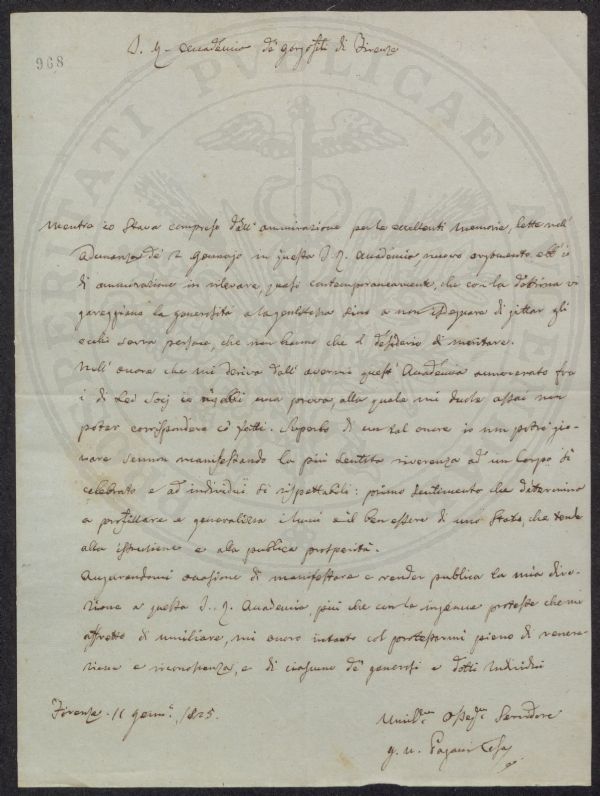 968
I. R. Accademia de' Georgofili di Firenze
PROSPERITATI PUBLICAE AUGENDAE
Mentre io stava compreso dall' ammirazione per le eccellenti Memorie, lette nell'
Adunanza de' 2 Gennajo in questa I. R. Accademia, nuovo argomento ebbi
di ammirazione in rilevare, quasi contemporaneamente, che con la dottrina vi
gareggiano la generosità e la gentilezza sino a non isdegnare di gittar gli
occhi sovra persone, che non hanno che il desiderio di meritare.
Nell' onore che mi deriva dall' avermi quest' Accademia annoverato fra
i di Lei Socj io una prova, alla quale mi duole assai non
poter corrispondere co' fatti. Superbo di un tal onore io non potrò gio-
vare sennon manifestando la più sentita riverenza ad un Corpo sì
celebrato e ad individui sì rispettabili: primo sentimento che determina
a profittare e generalizza i lumi e il ben essere di uno Stato, che tende
alla istruzione e alla publica prosperità.
Augurandomi occasione di manifestare e render publica la mia divo-
zione a questa I. R. Accademia, più che con le ingenue proteste che mi
affretto di umiliare, mi onoro intanto col protestarmi pieno di venera-
zione e riconoscenza, e di ciascuno de' generosi e dotti Individui
Firenze 11 Genn.º 1825.
Umil.mo Osseq.mo Servidore